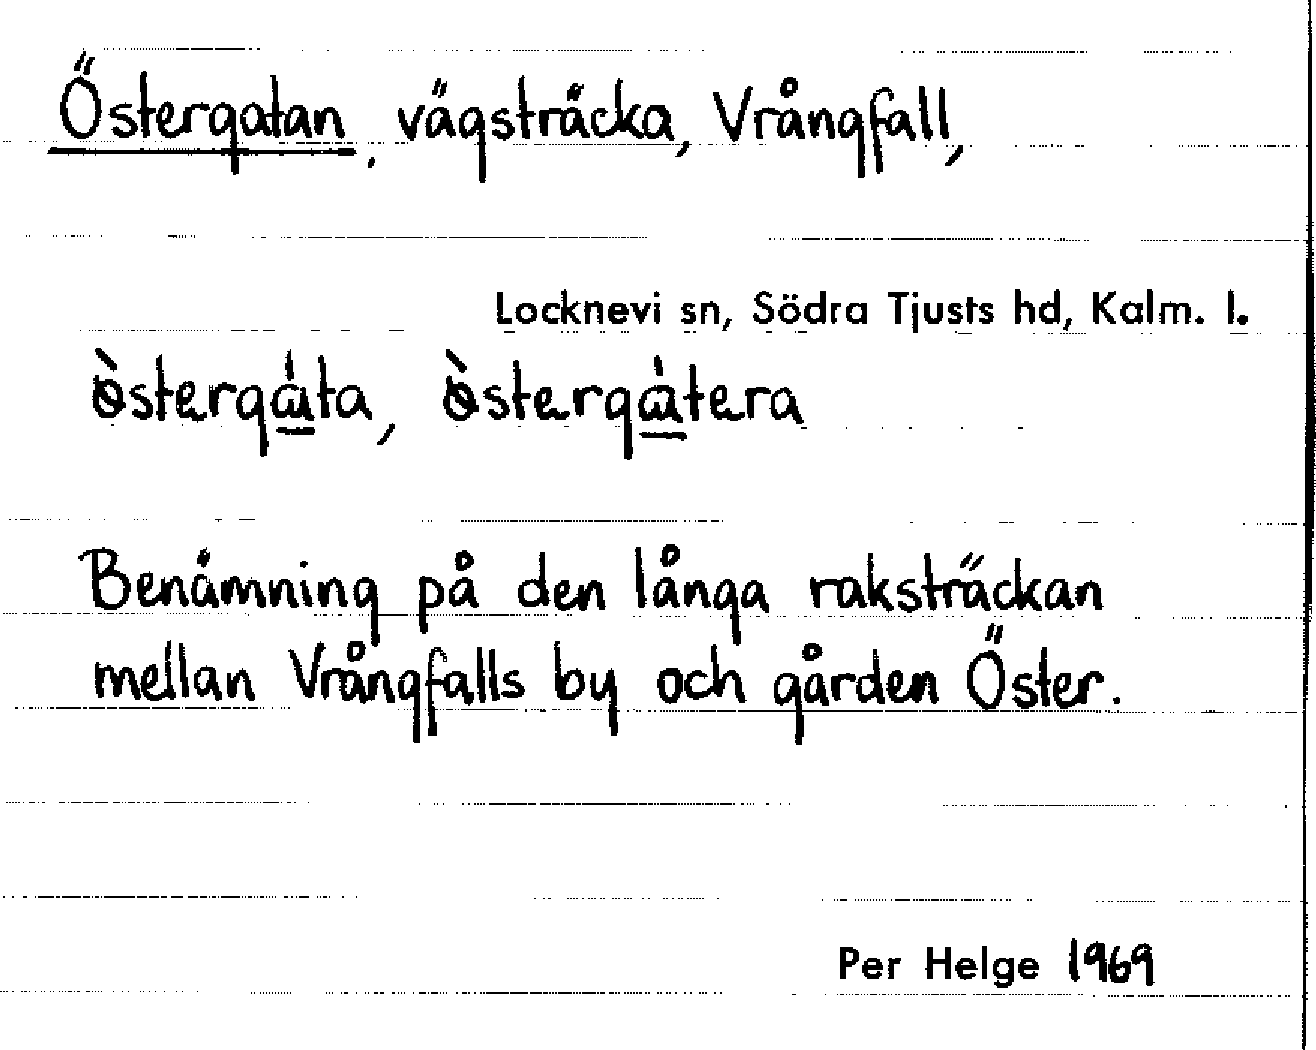 Östergatan, vägsträcka, Vrångfall,
Locknevi sn, Södra Tjusts hd, Kalm. l.
Benämning på den långa raksträckan
mellan Vrångfalls by och gården Öster.
Per Helge 1969